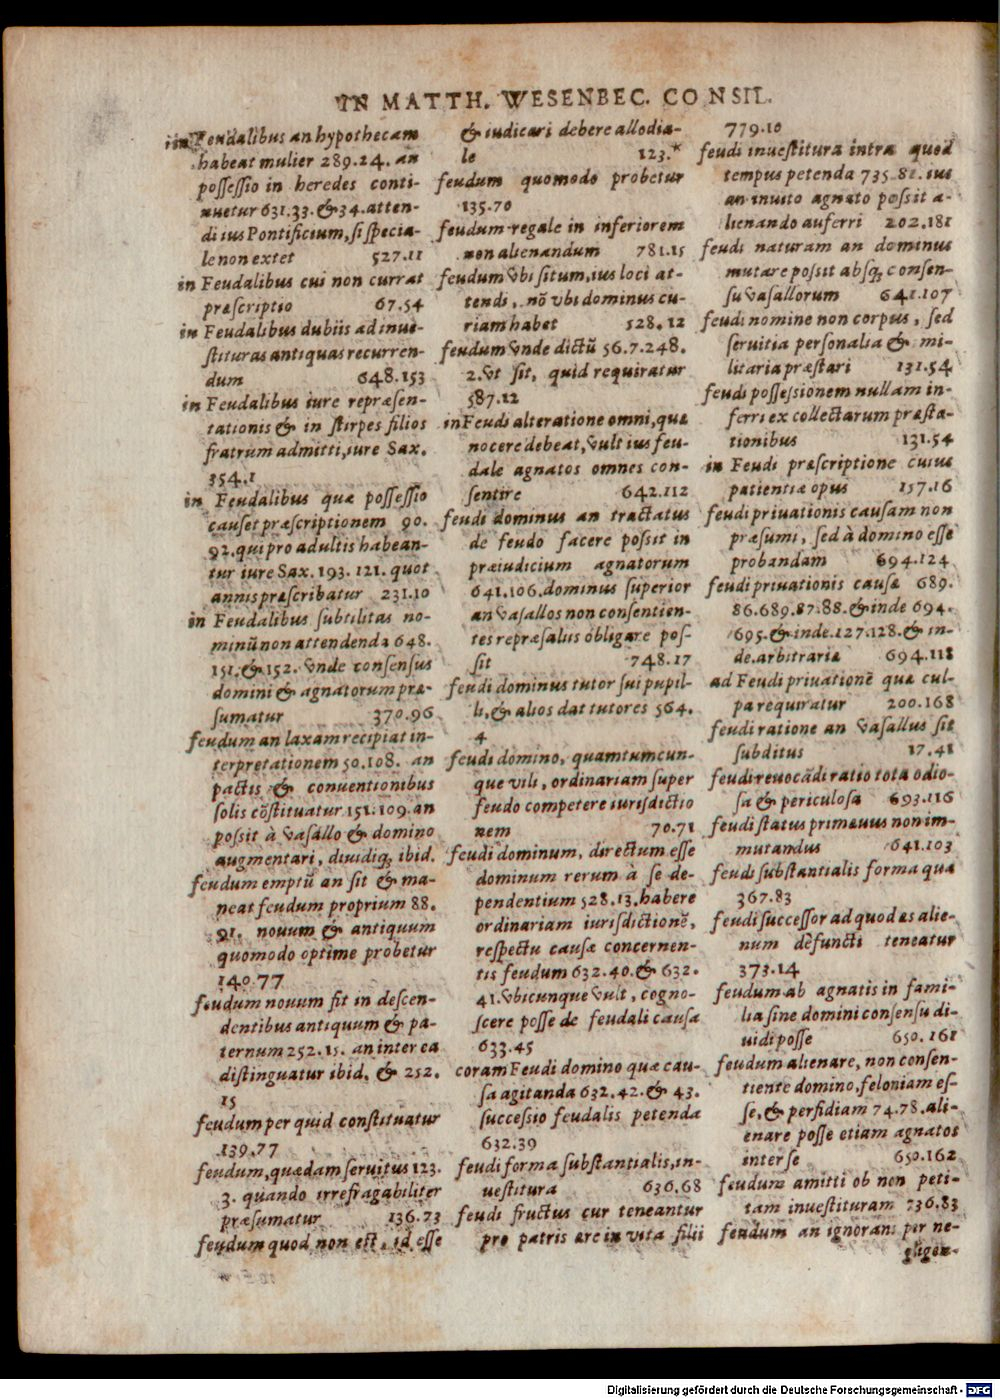 IN MATTH. WESENBEC. CONSIL.
in Feudalibus an hypothecam
habeat mulier 289.24. an
possessio in heredes conti-
nuetur 631.33. & 34. atten-
di ius Pontificium, si specia-
le non extet 527.11
in Feudalibus cui non currat
præscriptio 67.54
in Feudalibus dubiis ad inue-
stituras antiquas recurren-
dum 648.153
in Feudalibus iure repræsen-
tationis & in stirpes filios
fratrum admitti, iure Sax.
354.1
in Feudalibus quæ possessio
causet præscriptionem 90.
92. qui pro adultis habean-
tur iure Sax. 193. 121. quot
annis præscribatur 231.10
in Feudalibus subtilitas no-
minū non attendenda 648.
151. & 152. vnde consensus
domini & agnatorum præ-
sumatur 370.96
feudum an laxam recipiat in-
terpretationem 50.108. an
pactis & conuentionibus
solis cōstituatur 151.109. an
possit à vasallo & domino
augmentari, diuidiq; ibid.
feudum emptū an sit & ma-
neat feudum proprium 88.
91. nouum & antiquum
quomodo optime probetur
140.77
feudum nouum fit in descen-
dentibus antiquum & pa-
ternum 252.15. an inter ea
distinguatur ibid. & 252.
15
feudum per quid constituatur
139.77
feudum, quædam seruitus 123.
3. quando irrefragabiliter
præsumatur 136.73
feudum quod non est, id esse
& iudicari debere allodia-
le 123.*
feudum quomodo probetur
135.70
feudum regale in inferiorem
non alienandum 781.15
feudum vbi situm, ius loci at-
tendi, nō vbi dominus cu-
riam habet 528.12
feudum vnde dictū 56.7.248.
2. vt sit, quid requiratur
587.12
in Feudi alteratione omni, quæ
nocere debeat, vult ius feu-
dale agnatos omnes con-
sentire 642.112
feudi dominus an tractatus
de feudo facere possit in
præiudicium agnatorum
641.106. dominus superior
an vasallos non consentien-
tes repræsaliis obligare pos-
sit 748.17
feudi dominus tutor sui pupil-
li, & alios dat tutores 564.
4
feudi domino, quamtumcun-
que vili, ordinariam super
feudo competere iurisdictio
nem 70.71
feudi dominum, directum esse
dominum rerum à se de-
pendentium 528.13. habere
ordinariam iurisdictionē,
respectu causæ concernen-
tis feudum 632.40. & 632.
41. vbicunque vult, cogno-
scere posse de feudali causa
633.45
coram Feudi domino quæ cau-
sa agitanda 632.42. & 43.
successio feudalis petenda
632.39
feudi forma substantialis, in-
uestitura 636.68
feudi fructus cur teneantur
pro patris ære in vita filii
779.10
feudi inuestitura intra quod
tempus petenda 735.81. ius
an inuito agnato possit a-
lienando auferri 202.181
feudi naturam an dominus
mutare possit absq; consen-
su vasallorum 641.107
feudi nomine non corpus, sed
seruitia personalia & mi-
litaria præstari 131.54
feudi possessionem nullam in-
ferri ex collectarum præsta-
tionibus 131.54
in Feudi præscriptione cuius
patientiæ opus 157.16
feudi priuationis causam non
præsumi, sed à domino esse
probandam 694.124
feudi priuationis causæ 689.
86.689.87.88. & inde 694.
695. & inde. 127.128. & in-
de. arbitrariæ 694.118
ad Feudi priuationē quæ cul-
pa requiratur 200.168
feudi ratione an vasallus sit
subditus 17.41
feudi reuocādi ratio tota odio-
sa & periculosa 693.116
feudi status primæuus non im-
mutandus 641.103
feudi substantialis forma quæ
367.83
feudi successor ad quod æs alie-
num defuncti teneatur
373.14
feudum ab agnatis in fami-
lia sine domini consensu di-
uidi posse 650.161
feudum alienare, non consen-
tiente domino, feloniam es-
se, & perfidiam 74.78. ali-
enare posse etiam agnatos
inter se 650.162
feudum amitti ob non peti-
tam inuestituram 736.83
feudum an ignorans per ne-
gligen-
Digitalisierung gefördert durch die Deutsche Forschungsgemeinschaft - DFG